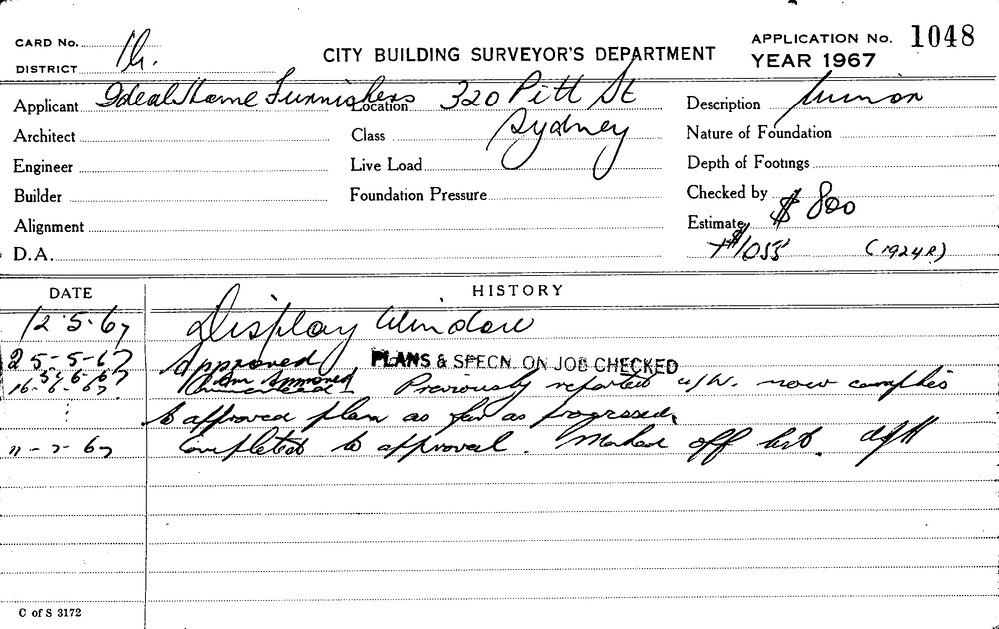 CARD No. 1b.
CITY BUILDING SURVEYOR'S DEPARTMENT
APPLICATION No. 1048
DISTRICT
YEAR 1967
Applicant Ideal Home Furnishers Location 320 Pitt St Description Minor
Architect Class Sydney Nature of Foundation
Engineer Live Load Depth of Footings
Builder Foundation Pressure Checked by
Alignment Estimate $ 800
D.A. + $1055 (1924R)
DATE HISTORY
12.5.67 Display Window
25-5-67 Approved PLANS & SPECN. ON JOB CHECKED
6.67 Approved
16.6.67. Previously reported u/w. now complies
to approved plan as far as progressed.
11-7-67 Completed to approval. Marked off list.
C of S 3172